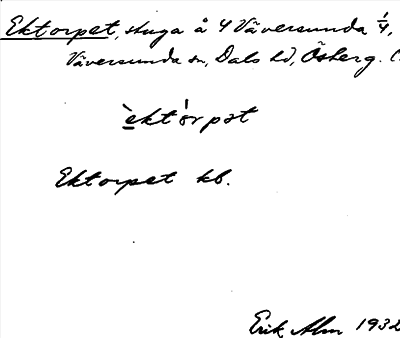 Ektorpet, stuga å 4 Väversunda 1/4,
Väversunda sn, Dals hd, Österg.
èktórpət
Ektorpet kb.
Erik Alm 1932